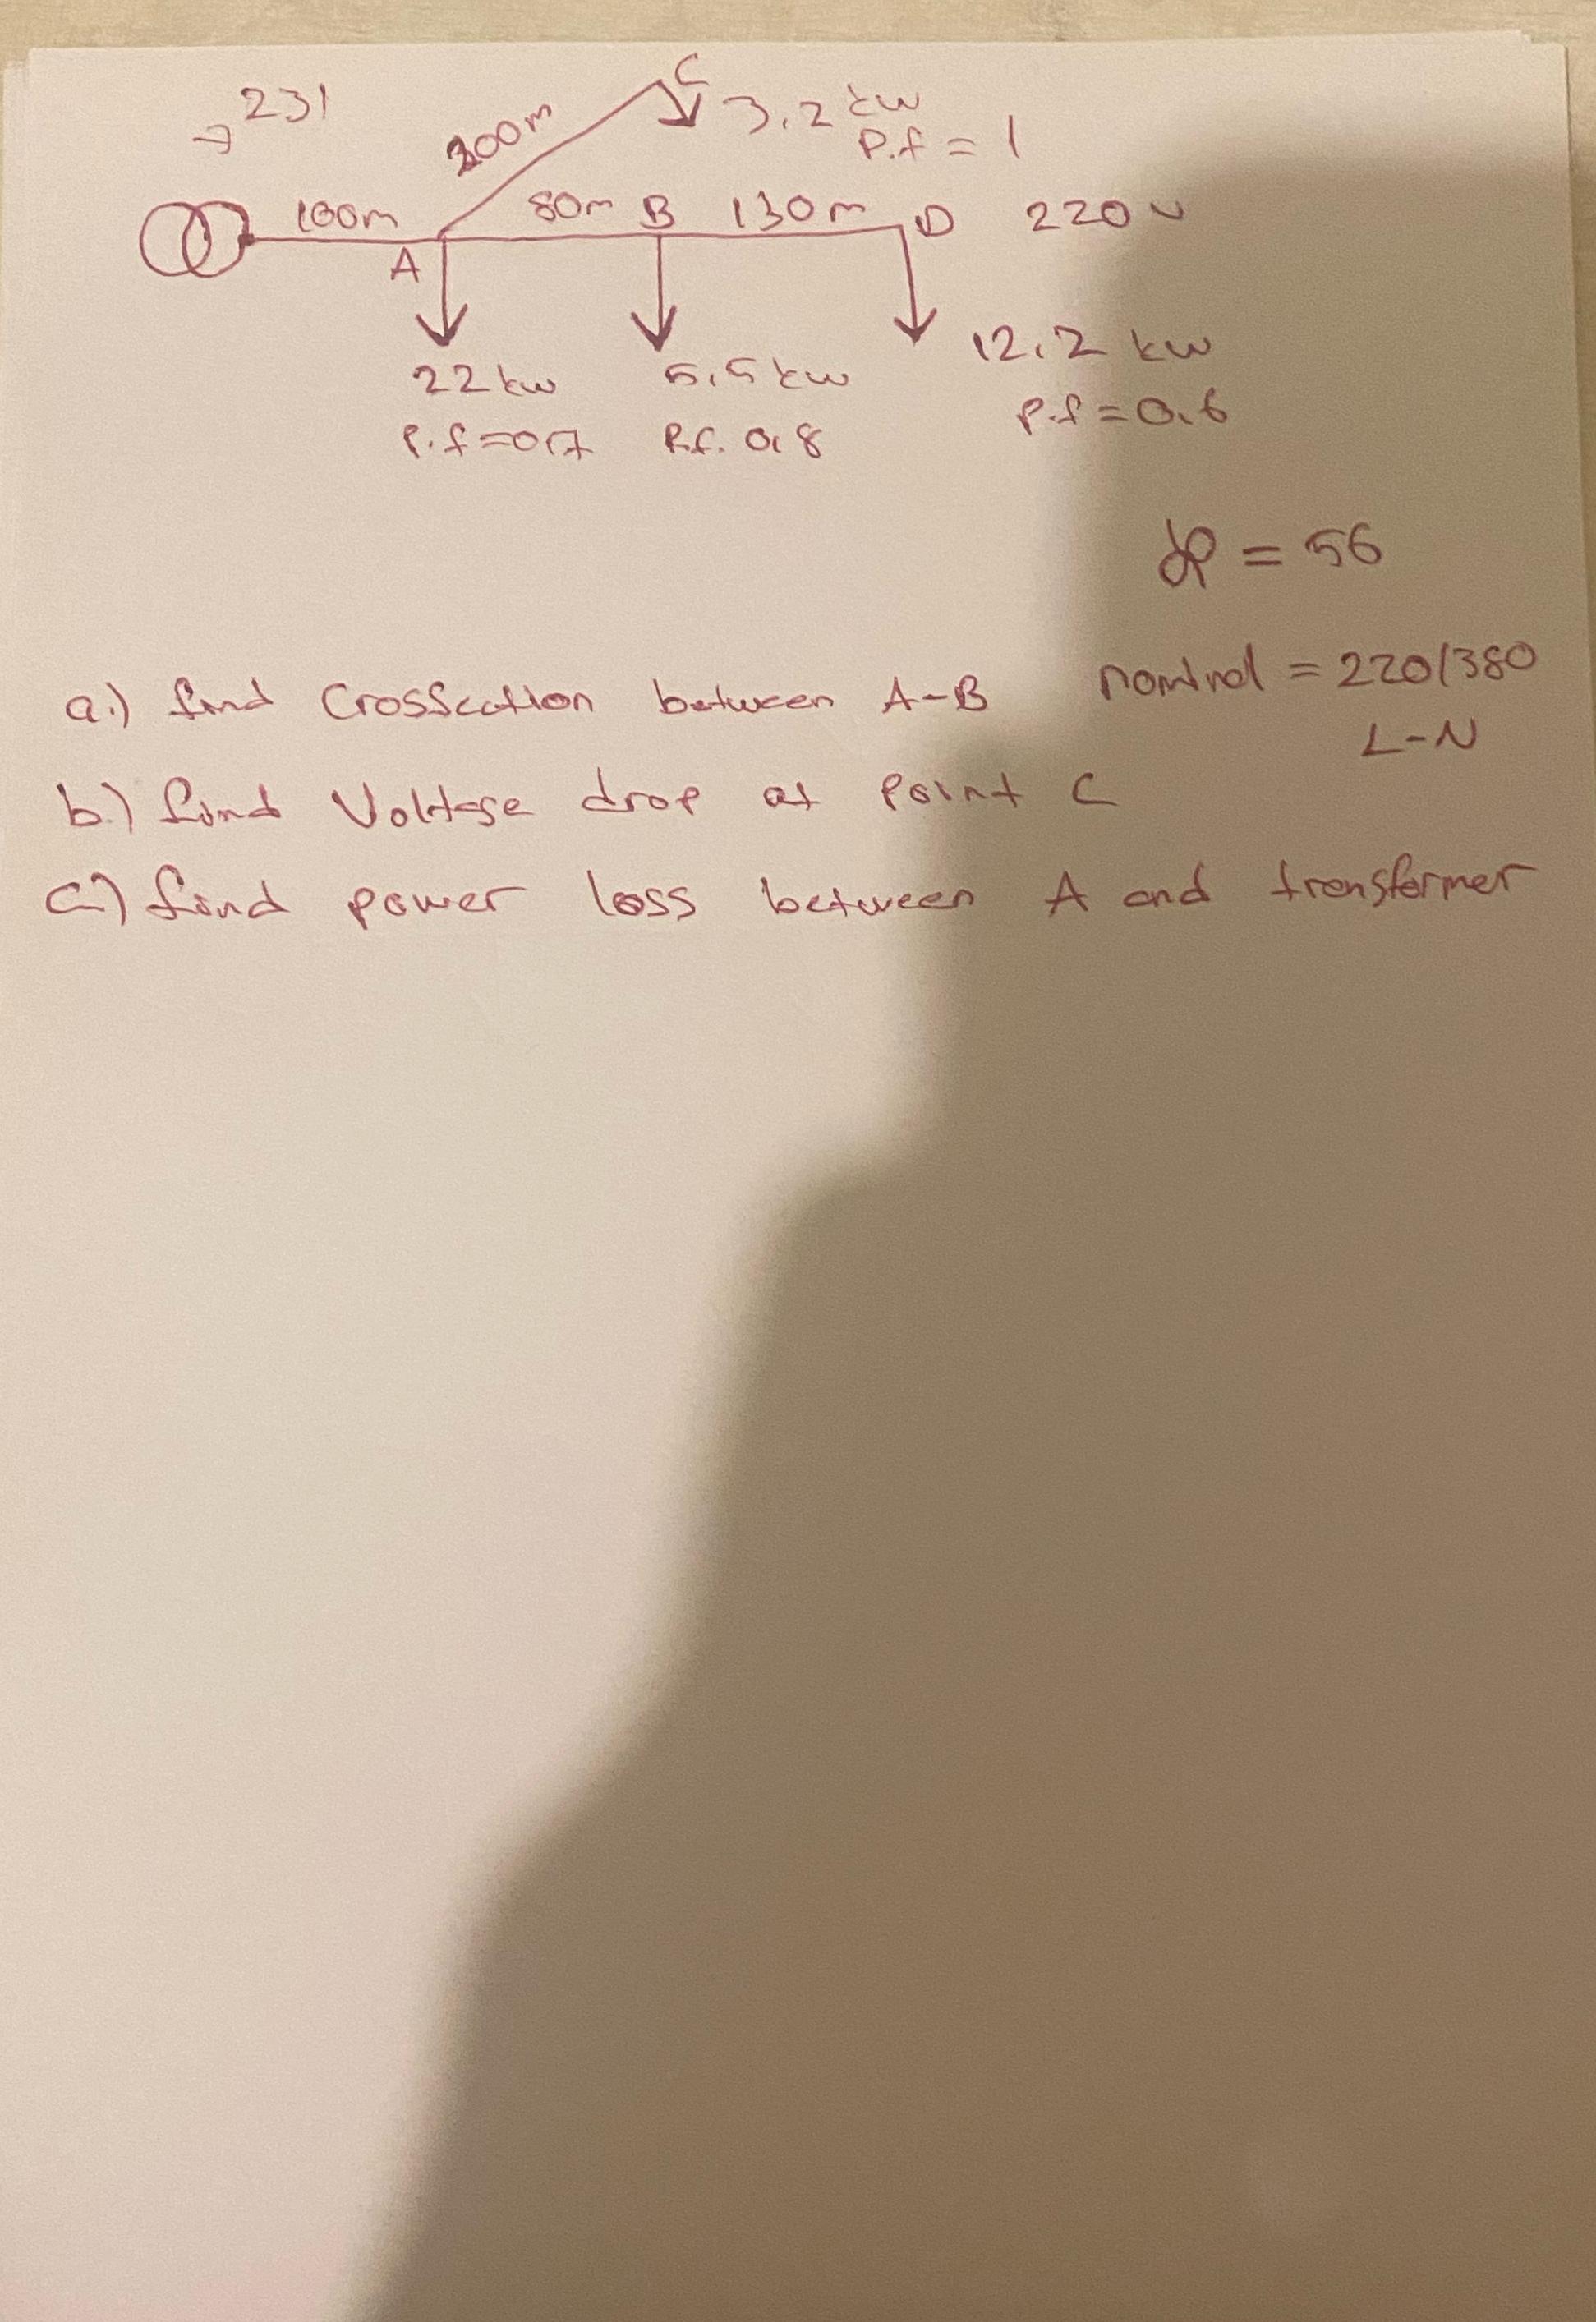 → 231
C
200m
3.2 kw
P.f = 1
100m
80m B 130m D 220v
A
22 kw
P.f = 0,7
5,5 kw
P.f. 0,8
12,2 kw
P.f = 0,6
= 56
nominal = 220/380
L-N
a.) find Crossection between A-B
b.) find Voltage drop at Point C
c) find power loss between A and transformer